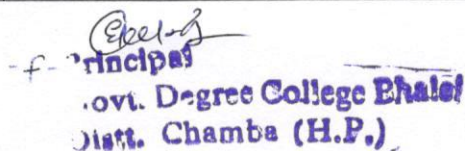 Principal
Govt. Degree College Bhalei
Distt. Chamba (H.P.)